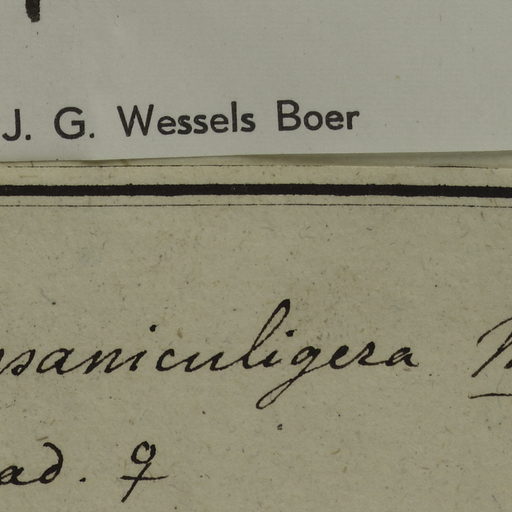 J. G. Wessels Boer
saniculigera
ad. ♀